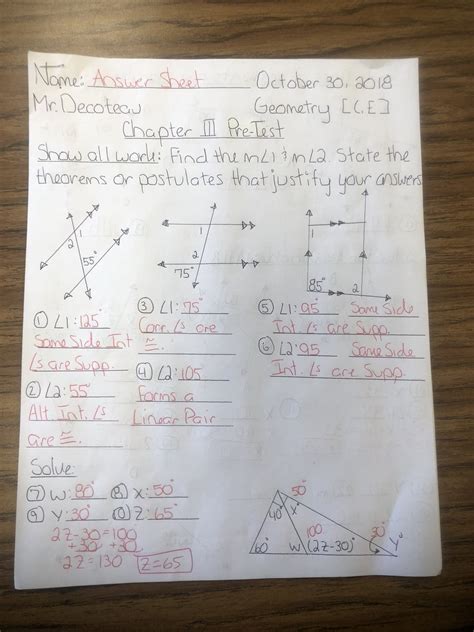 Name: Answer Sheet October 30, 2018
Mr. Decoteau Geometry [C,E]
Chapter III Pre-Test
Show all work: Find the m∠1 & m∠2. State the
theorems or postulates that justify your answers
1
2
55°
1
2
75°
1
85°
2
① ∠1: 125°
Same Side Int
∠s are Supp.
② ∠2: 55°
Alt. Int. ∠s
are ≅.
③ ∠1: 75°
Corr. ∠s are
≅.
④ ∠2: 105
Forms a
Linear Pair
⑤ ∠1: 95° Same Side
Int. ∠s are Supp.
⑥ ∠2: 95 Same Side
Int. ∠s are Supp.
Solve:
⑦ W: 80° ⑧ X: 50°
⑨ Y: 30° ⑩ Z: 65°
2Z-30=100
+30 +30
2Z=130 Z=65
50°
40° x°
100 30°
60° W (2Z-30)° Y°